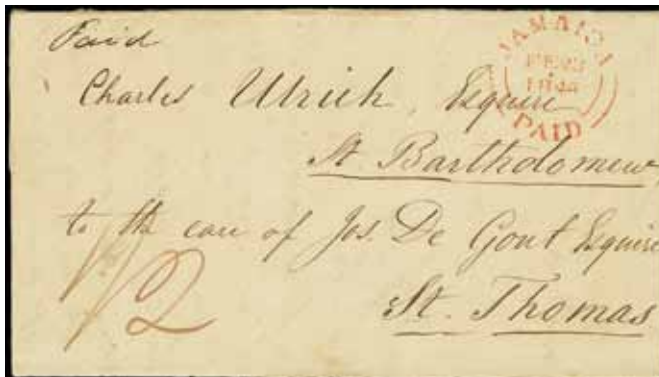 Paid
JAMAICA
PAID
Charles Ulrich, Esquire
St. Bartholomew
to the care of Jos. De Gout Esquire
St. Thomas